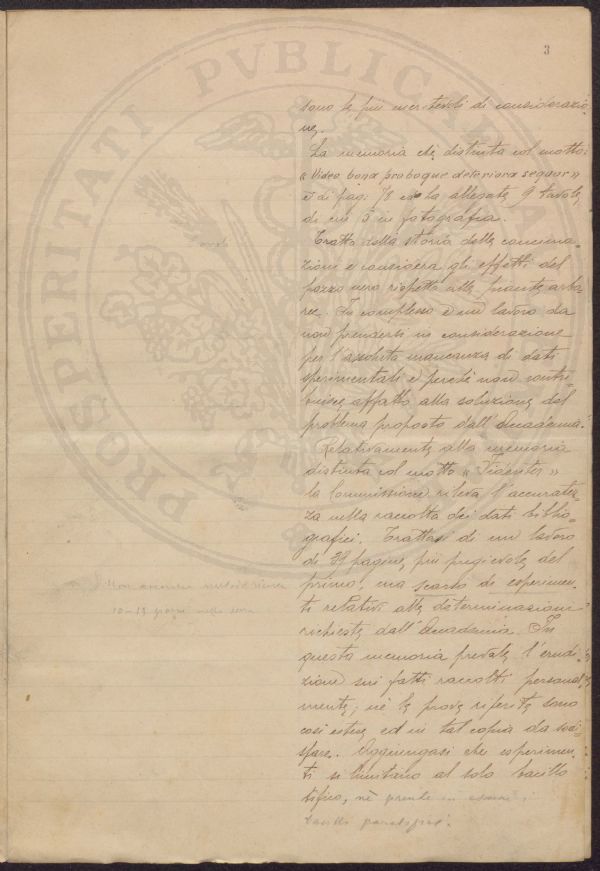 3
sono le più meritevoli di considerazio
ne.
La memoria che distinta col motto:
« Video bona proboque deteriora sequor »
è di pag. 78 con la allegate 9 tavole,
di cui 5 in fotografia.
Tratta della storia della concima-
zione e considera gli effetti del
pozzo nero rispetto alle piante arbo-
ree. In complesso è un lavoro da
non prendersi in considerazione
per l'assoluta mancanza di dati
sperimentali e perchè non contri-
buisce affatto alla soluzione del
problema proposto dall'Accademia.
Relativamente alla memoria
distinta col motto « Fidenter »
la Commissione rileva l'accuratez-
za nella raccolta dei dati biblio-
grafici. Trattasi di un lavoro
di 39 pagine, più pregievole del
primo, ma scarso di esperimen-
ti relativi alle determinazioni
richieste dall'Accademia. In
questa memoria prevale l'erudi-
zione sui fatti raccolti personal-
mente; nè le prove riferite sono
così estese ed in tal copia da sodi-
sfare. Aggiungasi che esperimen-
ti si limitano al solo bacillo
tifico, nè prende in esame i
bacilli paratifici.
Non
10-13 giorni nelle
PROSPERITATI PVBLICAE